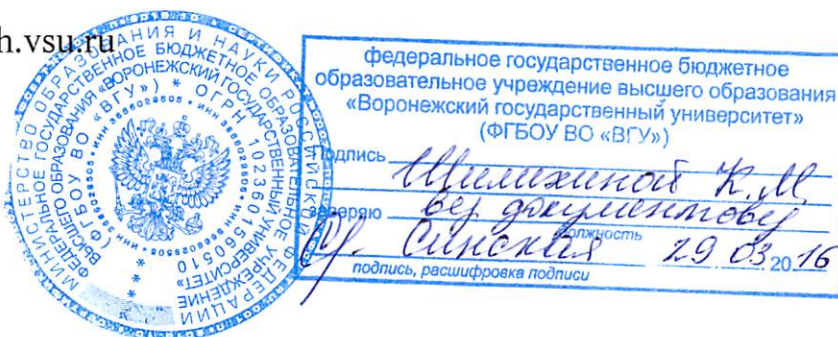 h.vsu.ru
МИНИСТЕРСТВО ОБРАЗОВАНИЯ И НАУКИ РОССИЙСКОЙ ФЕДЕРАЦИИ
ФЕДЕРАЛЬНОЕ ГОСУДАРСТВЕННОЕ БЮДЖЕТНОЕ ОБРАЗОВАТЕЛЬНОЕ УЧРЕЖДЕНИЕ
ВЫСШЕГО ОБРАЗОВАНИЯ «ВОРОНЕЖСКИЙ ГОСУДАРСТВЕННЫЙ УНИВЕРСИТЕТ»
(ФГБОУ ВО «ВГУ») * ОГРН 1023601560510
федеральное государственное бюджетное
образовательное учреждение высшего образования
«Воронежский государственный университет»
(ФГБОУ ВО «ВГУ»)
Подпись Шилихиной К.М.
заверяю вед. документовед
должность
Синская 29 03 2016
подпись, расшифровка подписи